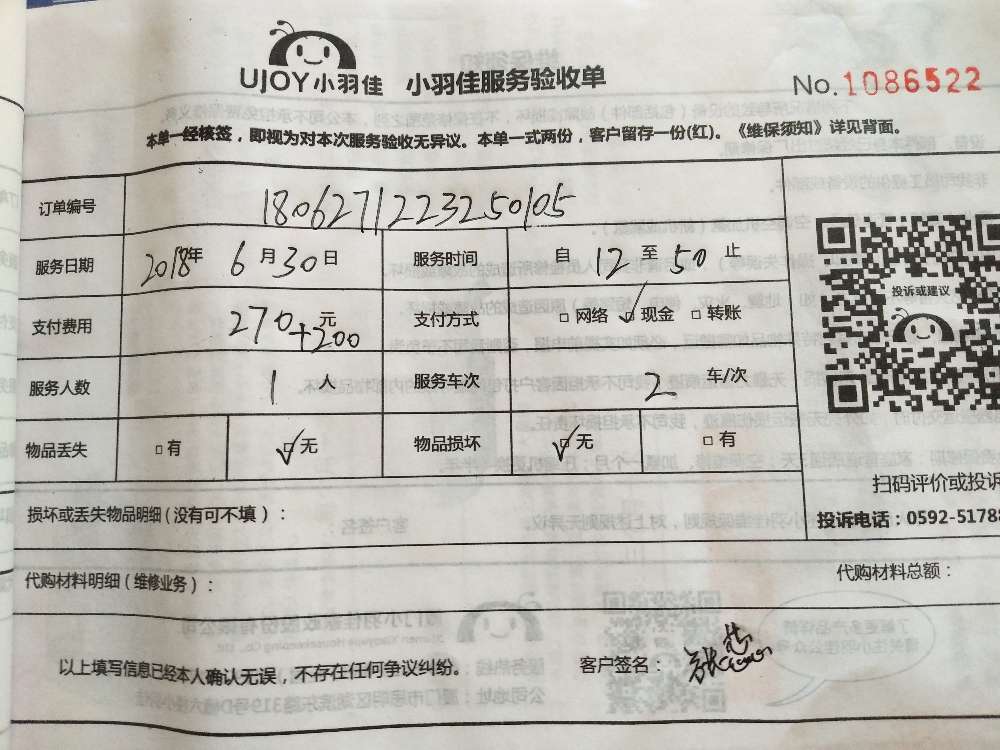 UJOY小羽佳 小羽佳服务验收单
No.1086522
本单一经核签，即视为对本次服务验收无异议。本单一式两份，客户留存一份(红)。《维保须知》详见背面。
订单编号 1806271223250105
服务日期 2018年 6月30日 服务时间 自 12 至 50 止
支付费用 270+200 元 支付方式 □网络 ☑现金 □转账
服务人数 1 人 服务车次 2 车/次
物品丢失 □有 ☑无 物品损坏 ☑无 □有
投诉或建议
扫码评价或投诉
投诉电话：0592-5178
损坏或丢失物品明细(没有可不填)：
代购材料明细(维修业务)：
代购材料总额：
以上填写信息已经本人确认无误，不存在任何争议纠纷。
客户签名：张